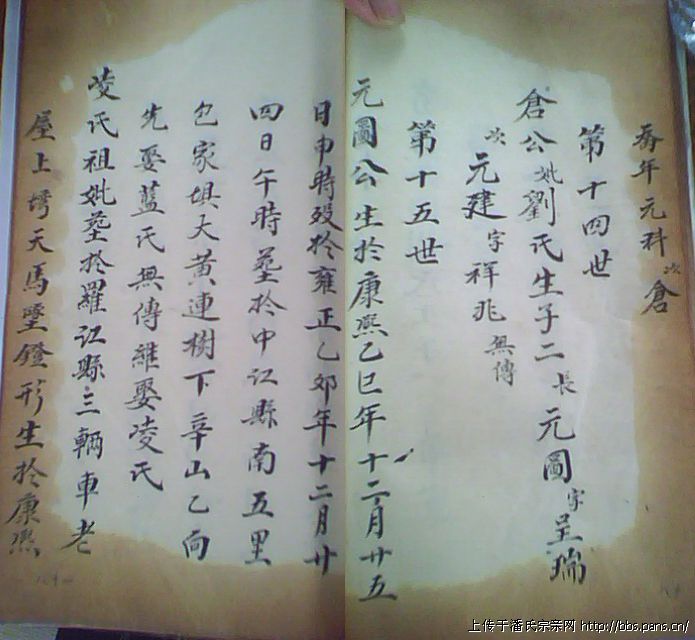 年元科次倉
第十四世
倉公妣劉氏生子二長元圖字呈瑞
次元建字祥兆無傳
第十五世
元圖公生於康熙乙巳年十二月廿五
日申時歿於雍正乙卯年十二月廿
四日午時塟於中江縣南五里
包家埧大黃連樹下辛山乙向
先娶藍氏無傳継娶凌氏
凌氏祖妣塟於羅江縣三輛車老
屋上塆天馬墜鐙形生於康熙
上传于潘氏宗亲网 http://bbs.pans.cn/